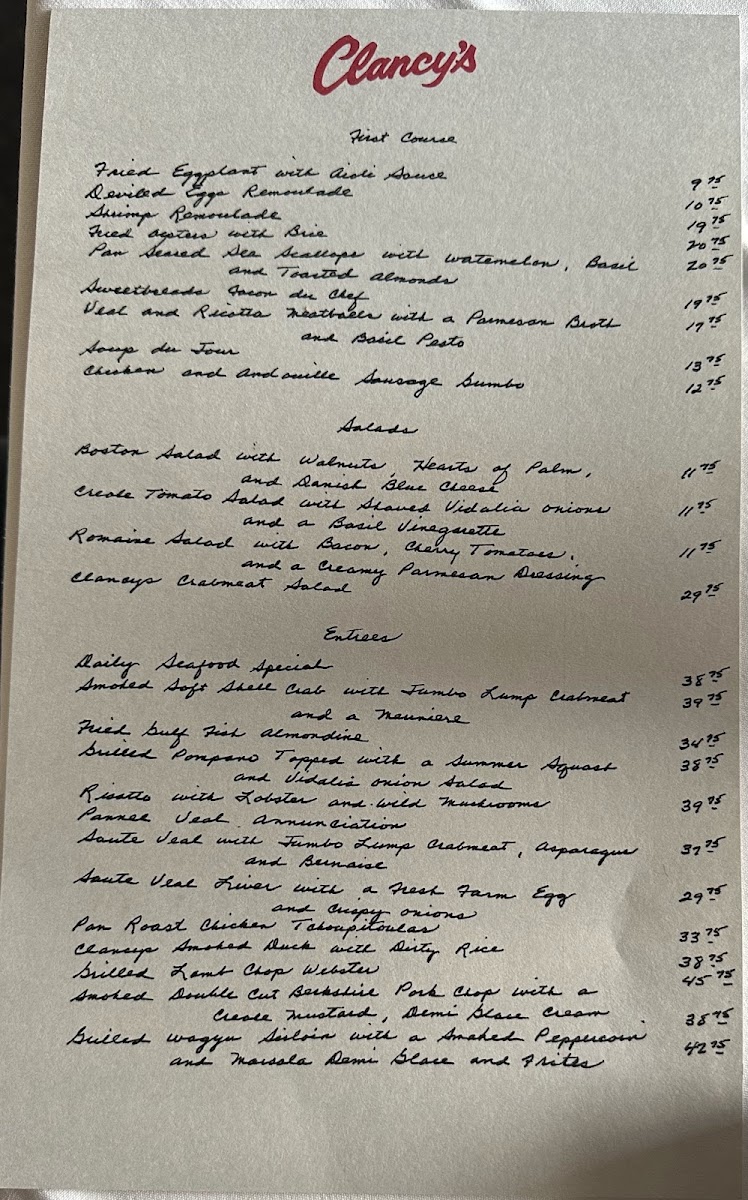 Clancy's
First Course
Fried Eggplant with Aioli Sauce 9 75
Deviled Eggs Remoulade 10 75
Shrimp Remoulade 19 75
Fried Oysters with Brie 20 75
Pan Seared Sea Scallops with Watermelon, Basil 20 75
and Toasted Almonds
Sweetbreads Facon du Chef 19 75
Veal and Ricotta Meatballs with a Parmesan Broth 17 75
and Basil Pesto
Soup du Jour 13 75
Chicken and Andouille Sausage Gumbo 12 75
Salads
Boston Salad with Walnuts, Hearts of Palm, 11 75
and Danish Blue Cheese
Creole Tomato Salad with Shaved Vidalia Onions 11 75
and a Basil Vinegarette
Romaine Salad with Bacon, Cherry Tomatoes, 11 75
and a Creamy Parmesan Dressing
Clancys Crabmeat Salad 29 75
Entrees
Daily Seafood Special 38 75
Smoked Soft Shell Crab with Jumbo Lump Crabmeat 39 75
and a Meuniere
Fried Gulf Fish Almondine 34 75
Grilled Pompano Topped with a Summer Squash 38 75
and Vidalia Onion Salad
Risotto with Lobster and Wild Mushrooms 39 75
Pannee Veal Annunciation
Saute Veal with Jumbo Lump Crabmeat, Asparagus 37 75
and Bernaise
Saute Veal Liver with a Fresh Farm Egg 29 75
and Crispy Onions
Pan Roast Chicken Tchoupitoulas 33 75
Clancys Smoked Duck with Dirty Rice 38 75
Grilled Lamb Chop Webster 45 75
Smoked Double Cut Berkshire Pork Chop with a
Creole Mustard, Demi Glace Cream 38 75
Grilled Wagyu Sirloin with a Smoked Peppercorn 42 75
and Marsala Demi Glace and Frites